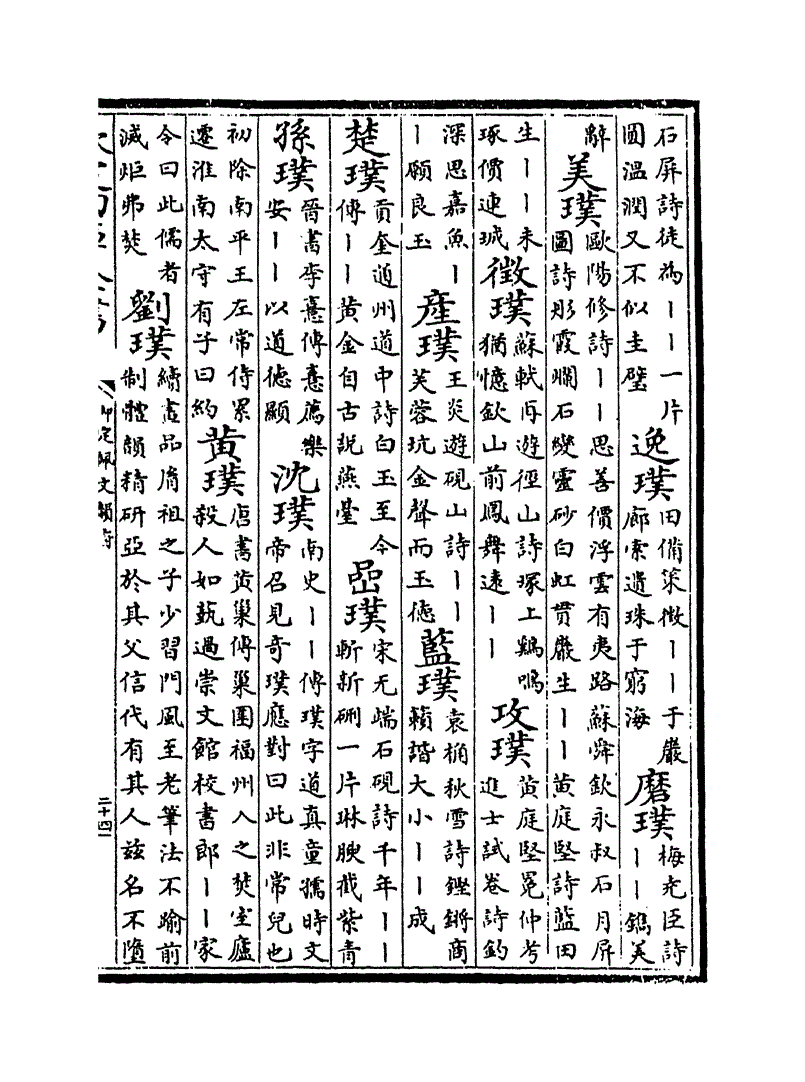 石屏詩徒為丨丨一片圓溫潤又不似圭璧 逸璞 田俻策徴丨丨于巖廊索遺珠于窮海 磨璞 梅尭臣詩丨丨鐫美
辭 美璞 歐陽修詩丨丨思善價浮雲有夷路蘇舜欽永叔石月屏圖詩彤霞爛石變靈砂白虹貫巖生丨丨黄庭堅詩藍田
生丨丨未琢價連城 徴璞 蘇軾再遊徑山詩塚上鷄鳴猶憶欽山前鳳舞遠丨丨 攻璞 黄庭堅晁仲考進士試卷詩鈞
深思嘉魚丨丨願良玉 產璞 王炎遊硯山詩丨丨芙蓉坑金聲而玉德 藍璞 袁桷秋雪詩鏗鏘商籟諧大小丨丨成
楚璞 貢奎道州道中詩白玉至今傳丨丨黄金自古説燕臺 嵒璞 宋无端石硯詩千年丨丨斬新硎一片琳腴截紫青
孫璞 晉書李憙傳憙薦樂安丨丨以道德顯 沈璞 南史丨丨傳璞字道真童孺時文帝召見奇璞應對曰此非常兒也
初除南平王左常侍累遷淮南太守有子曰約 黄璞 唐書黄巢傳巢圍福州入之焚室廬殺人如蓺過崇文館校書郎丨丨家
令曰此儒者滅炬弗焚 劉璞 續畫品隋祖之子少習門風至老筆法不踰前制體韻精研亞於其父信代有其人兹名不墮
二十四